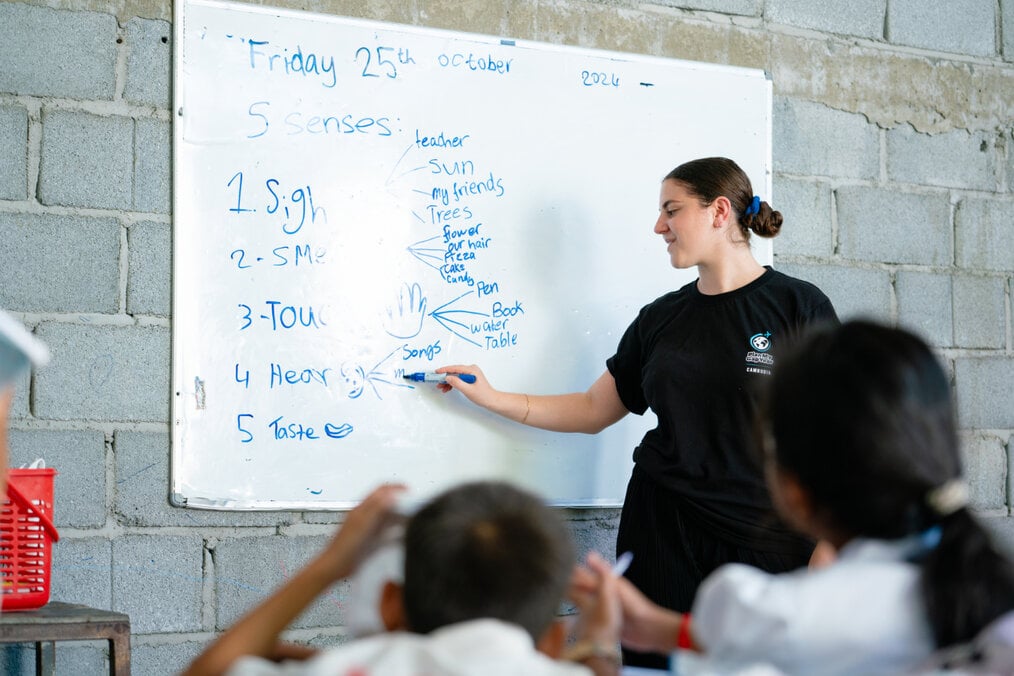 Friday 25th october 2024
5 senses:
teacher
Sun
1. Sigh
my friends
Trees
flower
our hair
2-SME
Pizza
Cake
Candy
Pen
3-TOUC
Book
water
Table
Songs
4 Hear
m
5 Taste
CAMBODIA